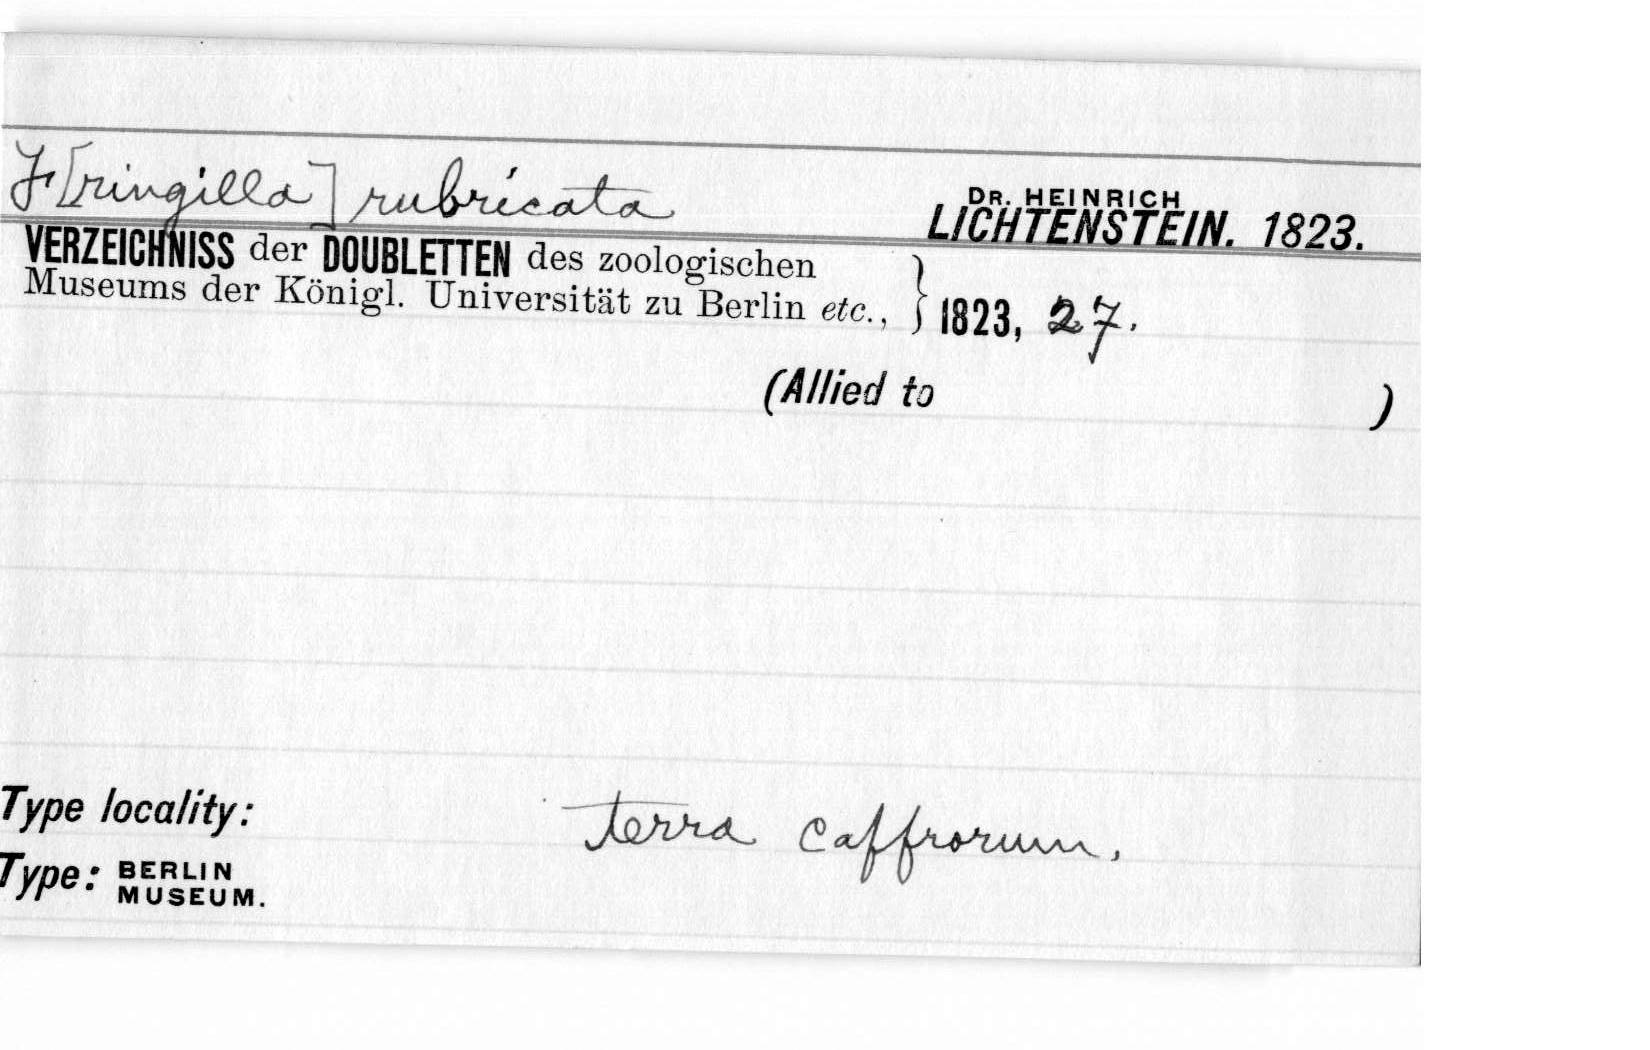 F[ringilla] rubricata
DR. HEINRICH
LICHTENSTEIN. 1823.
VERZEICHNISS der DOUBLETTEN des zoologischen
Museums der Königl. Universität zu Berlin etc., } 1823, 27.
(Allied to )
Type locality: terra caffrorum.
Type: BERLIN
MUSEUM.